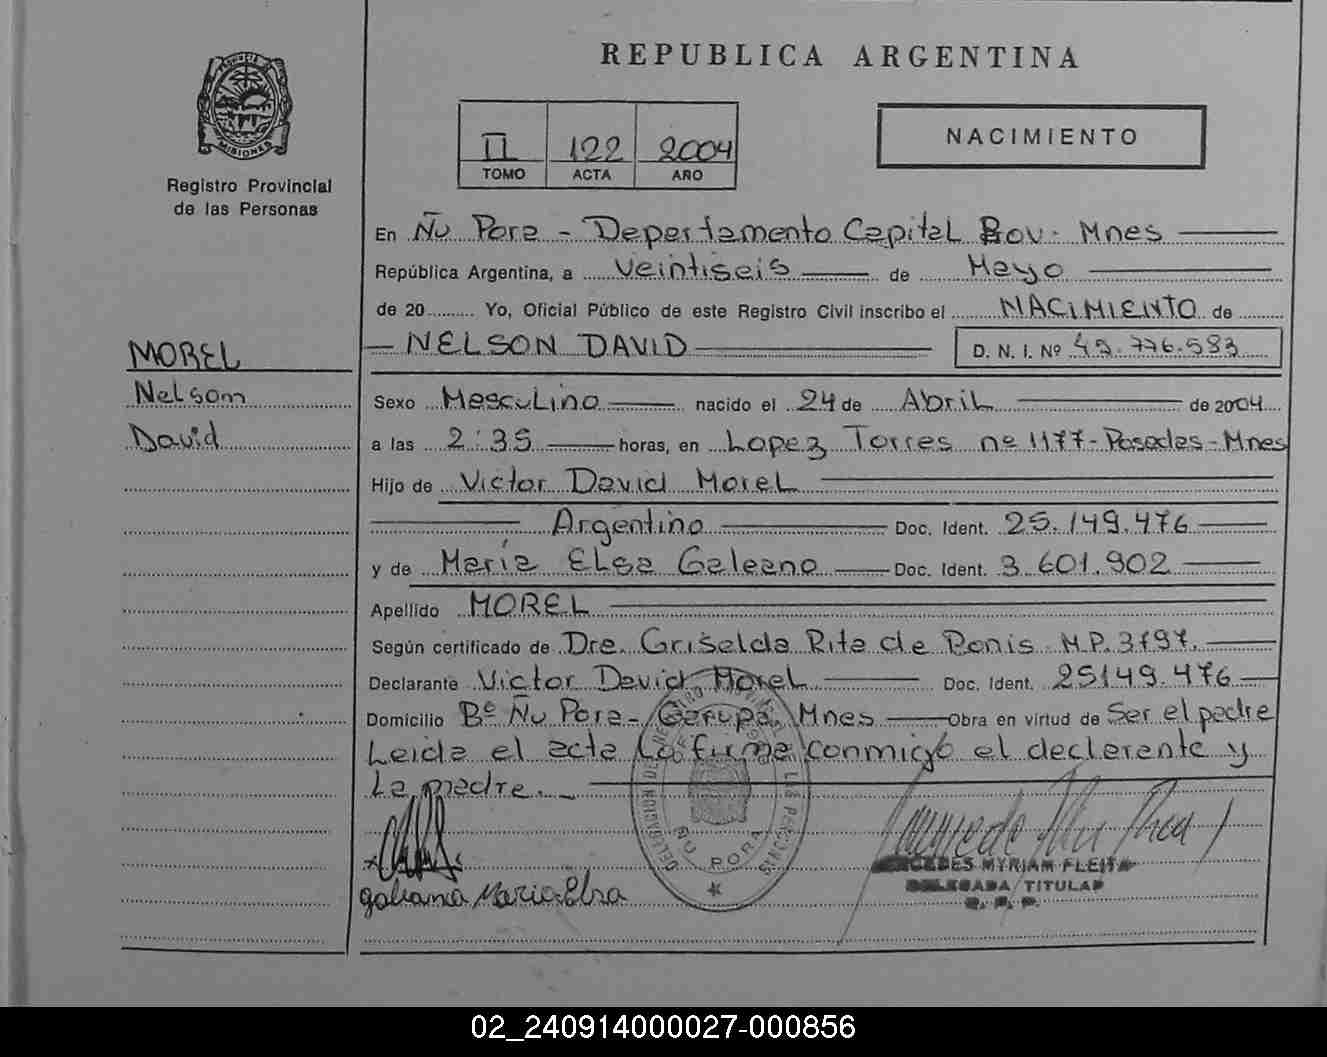 REPUBLICA ARGENTINA
PROVINCIA DE
MISIONES
Registro Provincial
de las Personas
II 122 2004
TOMO ACTA AÑO
NACIMIENTO
En Ñu Pora - Departamento Capital Mnes
República Argentina, a veintiseis de Mayo
de 20 Yo, Oficial Público de este Registro Civil inscribo el NACIMIENTO de
NELSON DAVID D. N. I. Nº 45.776.583
MOREL
Nelson
David
Sexo Masculino nacido el 24 de Abril de 2004
a las 2:35 horas, en Lopez Torres nº 1177-Posadas-Mnes
Hijo de Victor David Morel
Argentino Doc. Ident. 25.149.476
y de María Elsa Galeano Doc. Ident. 3.601.902
Apellido MOREL
Según certificado de Dra. Griselda Rita de Ponis M.P. 3197.
Declarante Victor David Morel Doc. Ident. 25149.476
Domicilio Bº Ñu Pora - Garupá, Mnes Obra en virtud de Ser el padre
Leida el acta la firma conmigo el declarante y
La madre.
galeana Maria Elsa
ÑU PORA
MYRIAM FLEITA
DELEGADA TITULAR
02_240914000027-000856